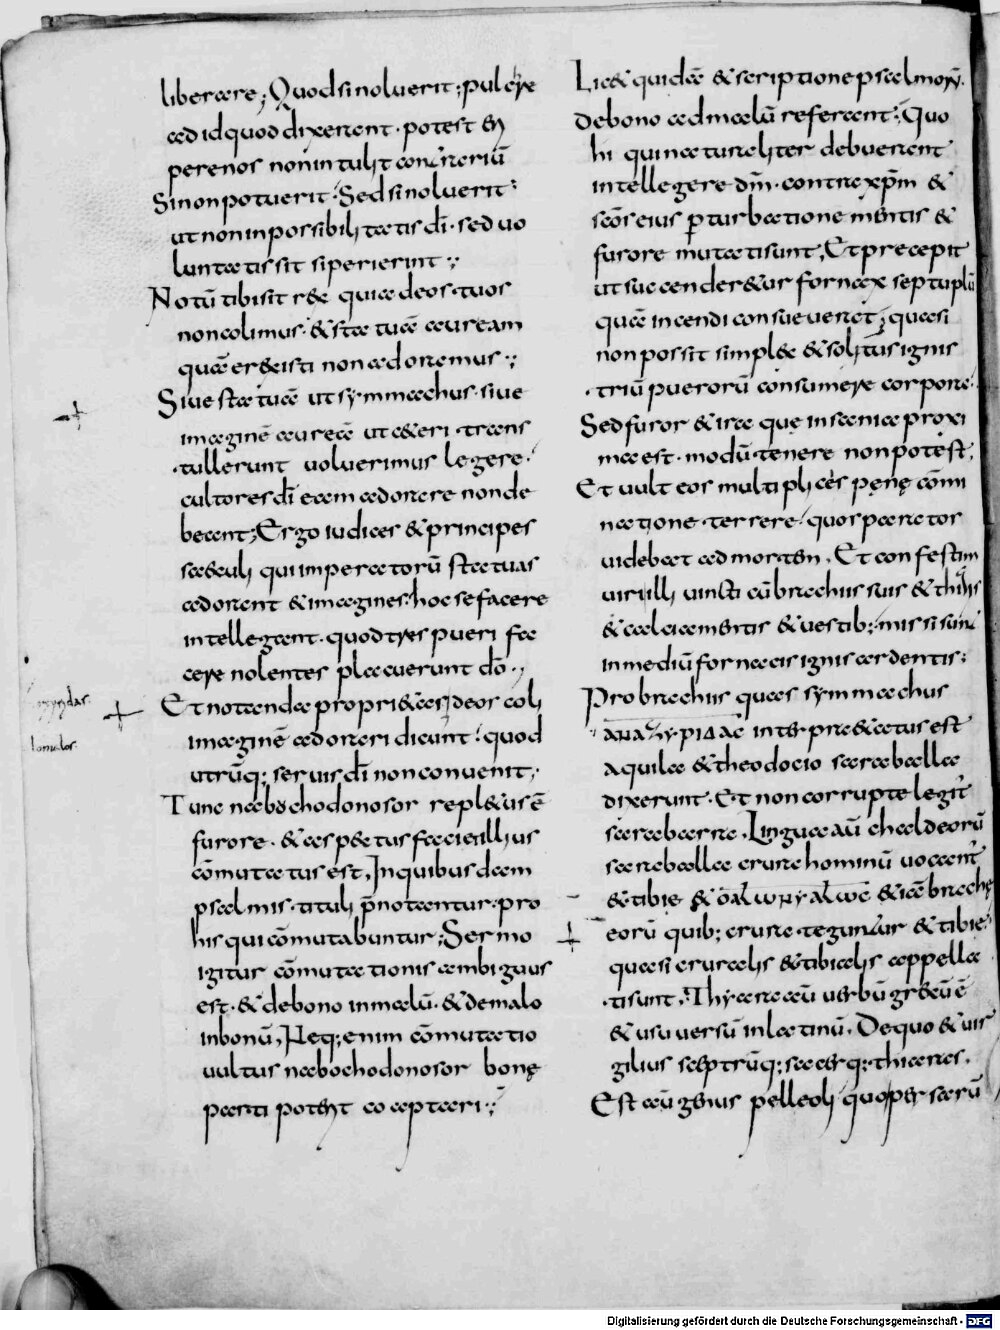 liberare; Quod si noluerit; pulchre
ad id quod dixerant· potest &
per enos non intulit contrariū
Si non potuerit· Sed si noluerit·
ut non inpossibilitatis dī· sed uo
luntatis sit si perierint·:
Notū tibi sit rex quia deos tuos
non colimus· & statuā auream
quā erexisti non adoramus·:
Siue statuā ut symmachus· siue
imaginē aureā ut ceteri trans
tullerunt uoluerimus legere·
cultores dī eam adorare non de
beant; Ergo iudices & principes
saeculi qui imperatorū statuas
adorant & imagines· hoc se facere
intellegant· quod tres pueri fa
cere nolentes placuerunt dō·,
Et notanda proprietas deos coli
imaginē adorari dicunt· quod
utrūq; seruis dī non conuenit,·
Tunc nabochodonosor repletus ē
furore· & aspectus faciei illius
cōmutatus est, In quibusdam
psalmis· tituli p̄notantur· pro
his qui cōmutabuntur; Sermo
igitur cōmutationis ambiguus
est· & de bono in malū· & de malo
in bonū, Neq; enim cōmutatio
uultus nabochodonosor bonę
parti potest coaptari·:
Lic& quidā & scriptione psalmorū·
de bono ad malū referant; Quo
hi qui naturaliter debuerant
intellegere dm̄· contra xpm̄ &
scōs eius pturbatione mentis &
furore mutati sunt, Et precepit
ut succenderetur fornax septuplū
quā incendi consueuerat; quasi
non possit simplex & solitus ignis
triū puerorū consumere corpora·
Sed furor & ira quę insaniae proxi
ma est· modū tenere non potest,
Et uult eos multiplicēs pęnę cōmi
natione terrere· quos paratos
uidebat ad mortem, Et confestim
uiri illi uincti cū brachiis suis & thiaris
& calciamentis & uestib; missi sunt
in mediū fornacis ignis ardentis:
Pro brachiis quas symmachus
αναξυριδας interpretatus est
aquila & theodocio saraballa
dixerunt· Et non corrupte legit̄
sarabara· Lingua aū chaldeorū
saraballa crura hominū uocant̄
& tibie & & iā brachę
eorū quib; crura teguntur & tibie·
quasi crurales & tibiales appella
ti sunt, Thyara aū uerbū grecū ē
& usu uersū in latinū, De quo & uir
gilius sceptrūq; sacerq; thiaras,
Est aū genus pelleoli quo per sarū